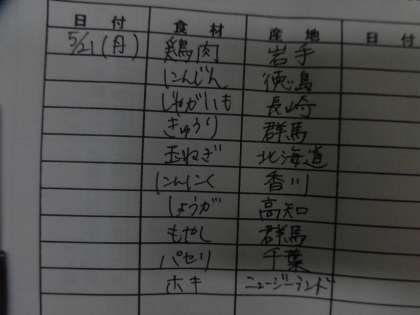 日付 食材 産地 日付
5/21(月) 鶏肉 岩手
にんじん 徳島
じゃがいも 長崎
きゅうり 群馬
玉ねぎ 北海道
にんにく 香川
しょうが 高知
もやし 群馬
パセリ 千葉
ホキ ニュージーランド